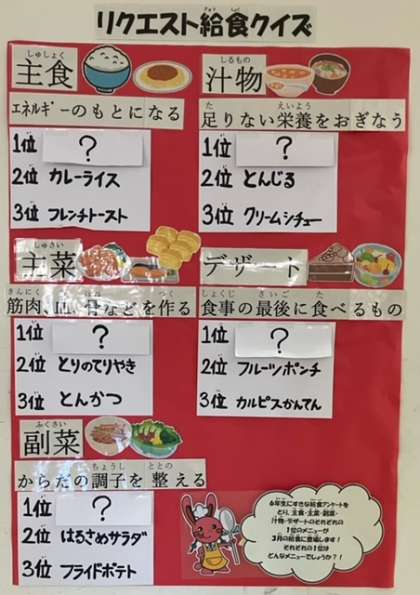 リクエスト給食クイズ
主食
エネルギーのもとになる
1位 ?
2位 カレーライス
3位 フレンチトースト
汁物
足りない栄養をおぎなう
1位 ?
2位 とんじる
3位 クリームシチュー
主菜
筋肉、血、骨などを作る
1位 ?
2位 とりのてりやき
3位 とんかつ
デザート
食事の最後に食べるもの
1位 ?
2位 フルーツポンチ
3位 カルピスかんてん
副菜
からだの調子を整える
1位 ?
2位 はるさめサラダ
3位 フライドポテト
6年生にすきな給食アンケートを
とり、主食・主菜・副菜・
汁物・デザートのそれぞれの
1位のメニューが
3月の給食に登場します!
それぞれの1位は
どんなメニューでしょうか?!